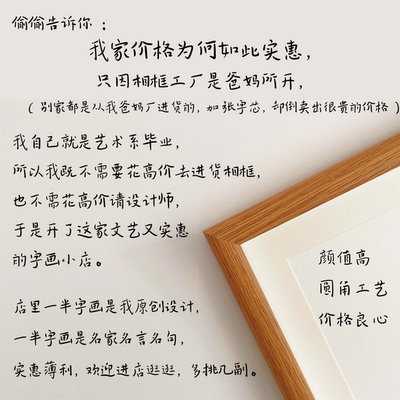 偷偷告诉你：
我家价格为何如此实惠，
只因相框工厂是爸妈所开，
（别家都是从我爸妈厂进货的，加张字芯，却倒卖出很贵的价格）
我自己就是艺术系毕业，
所以我既不需要花高价去进货相框，
也不需花高价请设计师，
于是开了这家文艺又实惠
的字画小店。
店里一半字画是我原创设计，
一半字画是名家名言名句，
实惠薄利，欢迎进店逛逛，多挑几副。
颜值高
圆角工艺
价格良心